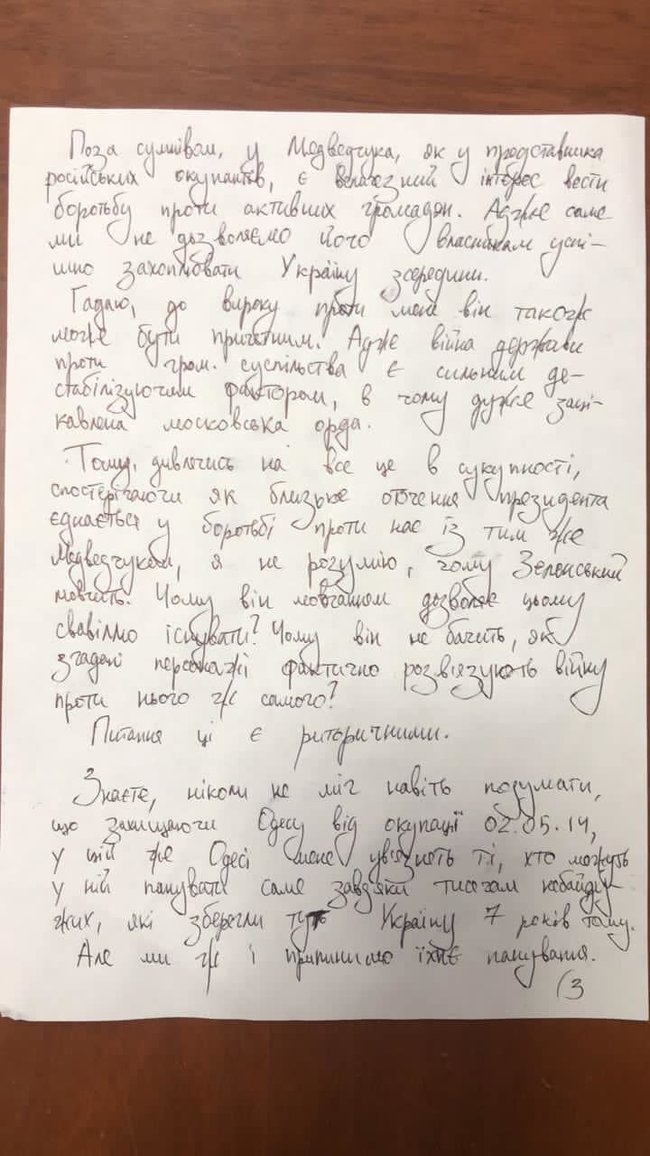 Поза сумнівом, у Медведчука, як у представника
російських окупантів, є величезний інтерес вести
боротьбу проти активних громадян. Адже саме
ми не дозволяємо його власникам успі-
шно захоплювати Україну зсередини.
Гадаю, до вироку проти мене він також
може бути причетним. Адже війна держави
проти гром. суспільства є сильним де-
стабілізуючим фактором, в чому дуже заці-
кавлена московська орда.
Тому, дивлячись на все це в сукупності,
спостерігаючи як близьке оточення президента
єднається у боротьбі проти нас із тим же
Медведчуком, я не розумію, чому Зеленський
мовчить. Чому він мовчанням дозволяє цьому
свавіллю існувати? Чому він не бачить, як
згадані персонажі фактично розв'язують війну
проти нього ж самого?
Питання ці є риторичними.
Знаєте, ніколи не міг навіть подумати,
що захищаючи Одесу від окупації 02.05.14,
у цій же Одесі мене ув'язнять ті, хто можуть
у ній панувати саме завдяки тисячам небайду-
жих, які зберегли тут Україну 7 років тому.
Але ми ж і припинимо їхнє панування.
(3